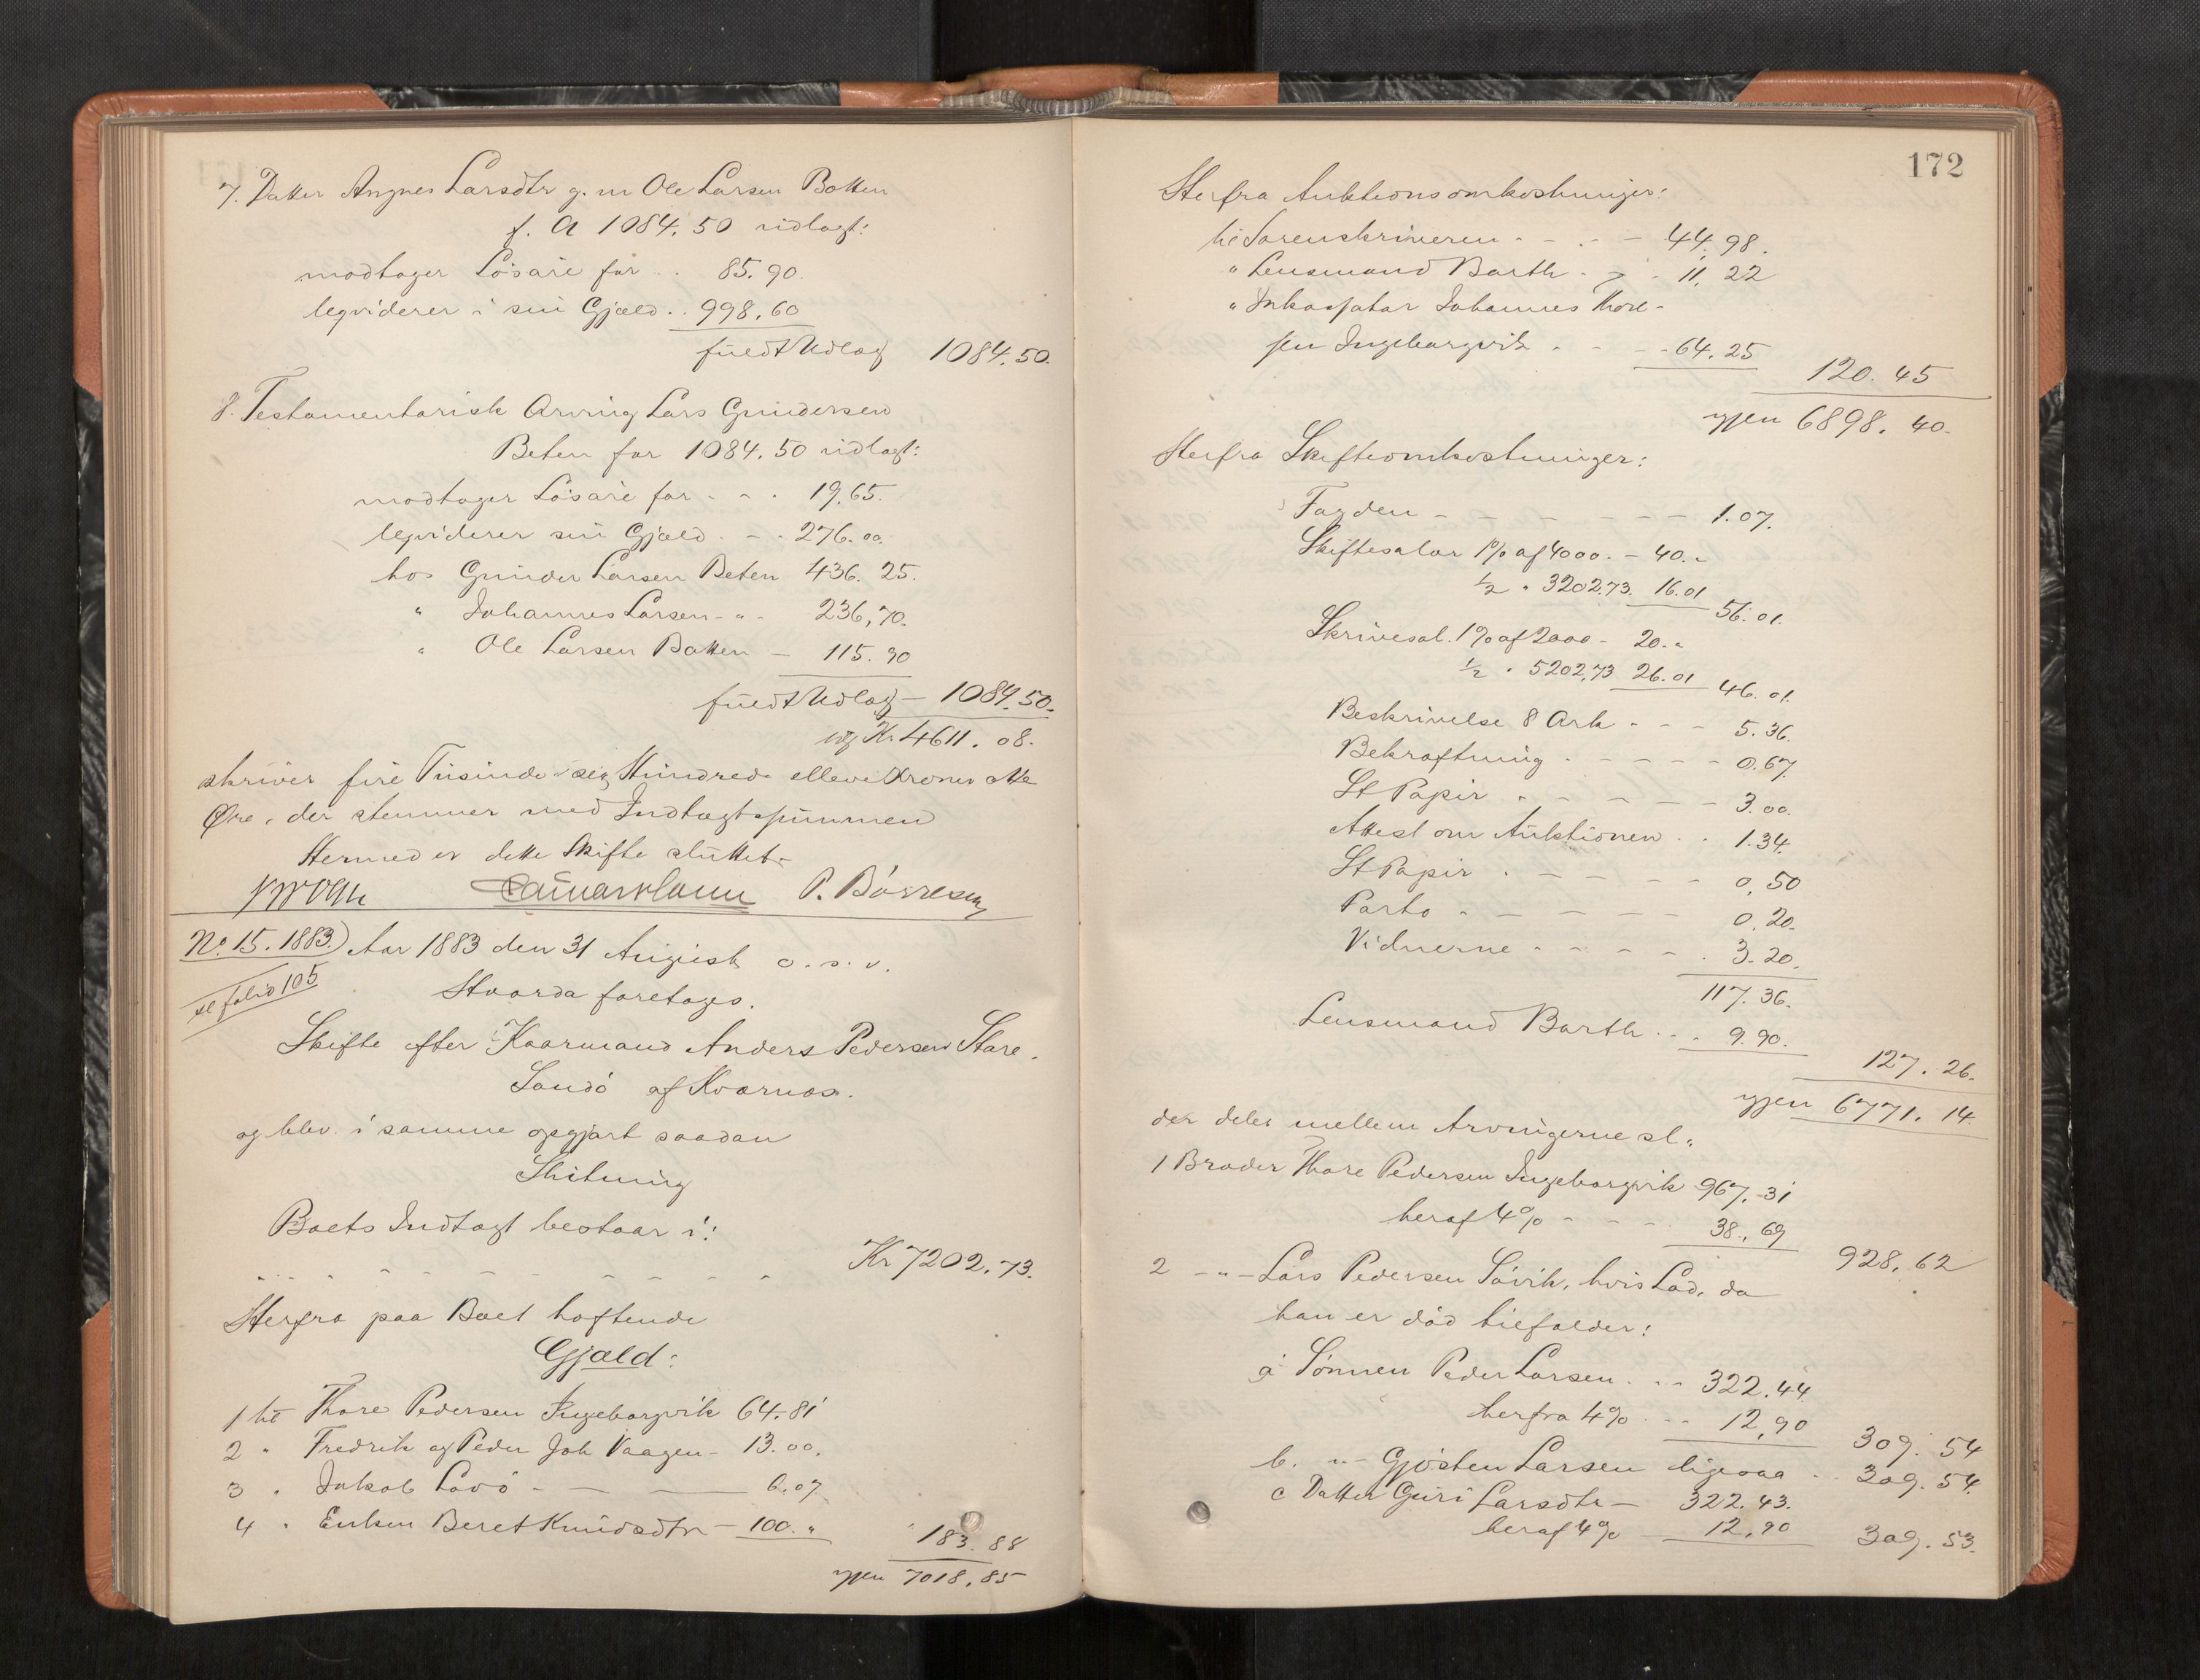 7. Datter Angnes Larsdtr g. m Ole Larsen Botten
f. A 1084.50 udlagt:
modtager Lösøre for .. 85.90.
leqviderer i sin Gjæld .. 998.60
fuldt Udlæg 1084.50.
8. Testamentarisk Arving Lars Gundersen
Beten for 1084.50 udlagt:
modtager Lösøre for - - . 19.65.
leqviderer sin Gjæld - - . 276.00.
hos Gunder Larsen Beten 436.25.
" Johannes Larsen - " - 236,70.
" Ole Larsen Botten - 115.90
fuldt Udlæg - 1084.50.
Kr 4611.08.
skriver fire Tusinde sex Hundrede elleve Kroner otte
Øre, der stemmer med Indtægtssummen
Hermed er dette Skifte sluttet.
P. Börresen
No. 15. 1883.) Aar 1883 den 31 August o. s. v.
se folio 105
Stoarda foretages.
Skifte efter Kaarmand Anders Pedersen Store
Sandö af Kvarnæs.
og blev i samme opgjort saadan
Slutning
Boets Indtægt bestaar i:
. . . - - - - - - - - - Kr 7202.73.
Herfra paa Boet heftende
Gjæld:
1 til Thore Pedersen Ingeborgvik 64.81
2 " Fredrik og Peder Joh Vaagen - 13.00.
3 " Jakob Lovö - — — 6.07
4 " Enken Beret Knudsdtr - 100. "
183.88
igjen 7018.85
172
Herfra Auktionsomkostninger:
til Sorenskriveren - - . - - 44.98.
" Lensmand Barth . - - 11,22
" Inkassator Johannes Thore-
sen Ingeborgvik - - - 64.25
120.45
igjen 6898.40.
Herfra Skifteomkostninger:
Fogden - - - - - - - 1.07.
Skiftesalær 1% af 4000. - 40. "
1/2 " 3202.73. 16.01
56.01.
Skrivesal. 1% af 2000 - 20. "
1/2 " 5202,73 26.01
46.01.
Beskrivelse 8 Ark - - - 5.36.
Bekræftning . - - - - 0.67.
St Papir - - - - - 3.00.
Attest om Auktionen . . 1.34.
St Papir . - - - - 0,50
Porto - - - - - 0.20.
Vidnerne - - - - . 3.20.
117.36.
Lensmand Barth . . 9.90.
127.26.
igjen 6771.14.
der deles mellem Arvingerne sl.
1 Broder Thore Pedersen Ingeborgvik 967.31
heraf 4% - - - . 38.,69
928.62
2 - " - Lars Pedersen Sövik, hvis Lod, da
han er död tilfalder:
a Sönnen Peder Larsen . - - 322.44
herfra 4% . - - 12,90
309.54
b. - " - Gjösten Larsen ligesaa . . 309.54.
c Datter Guri Larsdtr — 322.43.
heraf 4% — 12,90
309.53.